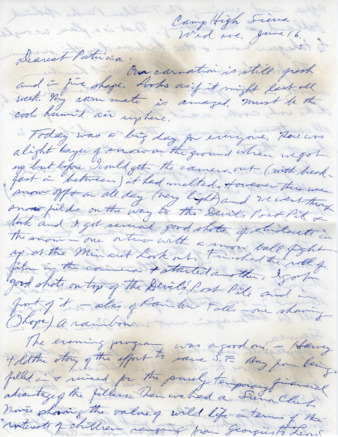 Camp High Sierra
Wed. eve. June 16.
Dearest Patricia
Our carnation is still fresh
and in fine shape. Looks as if it might last all
week. My room mate is amazed. Must be the
cool humid air up here.
Today was a big day for everyone. There was
a light layer of snow on the ground when we got
up but before I could get the camera out (with break-
fast in between) it had melted. However there were
snow off & on all day (very light) and we went through
snow fields on the way to the Devil's Post Pile &
back and I got several good shots of students in
the snow - one with a snow ball fight
up at the Minaret look out. Finished the roll of
film in the camera & started another. I got
good shots on top of the Devil's Post Pile and in
front of it - also of Rainbow Falls - one showing
(I hope) a rainbow.
The evening program was a good one - Harvey
told the story of the effort to save S.F. Bay from being
filled in & ruined for the purely temporary financial
advantage of the fillers. Then we had a Sierra Club
Movie showing the value of wild life in terms of the
of children ranging from